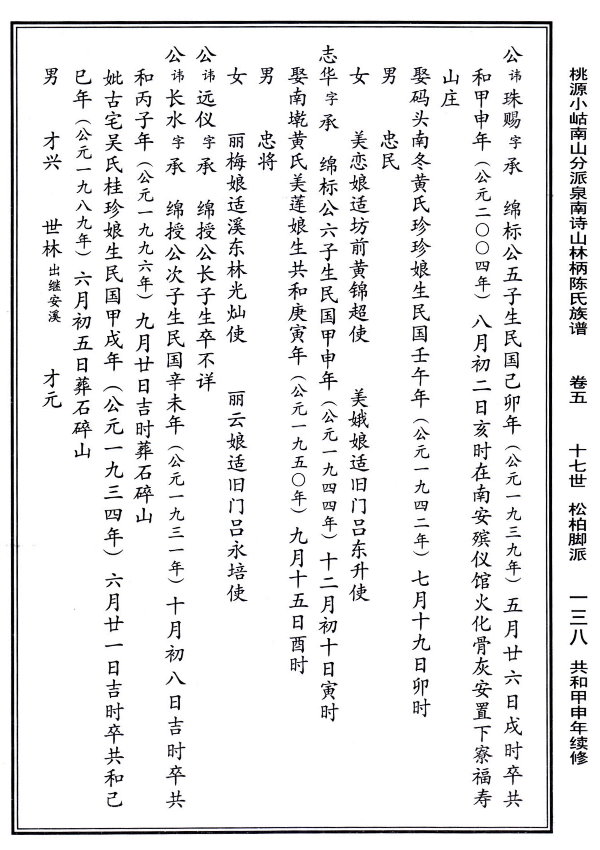 桃源小岵南山分派泉南诗山林柄陈氏族谱 卷五 十七世 松柏脚派 一三八 共和甲申年续修
公讳珠赐字承 绵标公五子生民国己卯年（公元一九三九年）五月廿六日戌时卒共
和甲申年（公元二〇〇四年）八月初二日亥时在南安殡仪馆火化骨灰安置下寮福寿
山庄
娶码头南冬黄氏珍珍娘生民国壬午年（公元一九四二年）七月十九日卯时
男 忠民
女 美恋娘适坊前黄锦超使 美娥娘适旧门吕东升使
志华字承 绵标公六子生民国甲申年（公元一九四四年）十二月初十日寅时
娶南墘黄氏美莲娘生共和庚寅年（公元一九五〇年）九月十五日酉时
男 忠将
女 丽梅娘适溪东林光灿使 丽云娘适旧门吕永培使
公讳远仪字承 绵授公长子生卒不详
公讳长水字承 绵授公次子生民国辛未年（公元一九三一年）十月初八日吉时卒共
和丙子年（公元一九九六年）九月廿日吉时葬石碎山
妣古宅吴氏桂珍娘生民国甲戌年（公元一九三四年）六月廿一日吉时卒共和己
巳年（公元一九八九年）六月初五日葬石碎山
男 才兴 世林出继安溪 才元